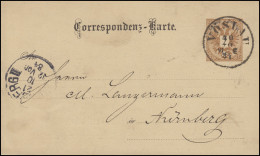 Correspondenz-Karte.
VÖSLAU
Herrn
M. Langermann
in
Nürnberg